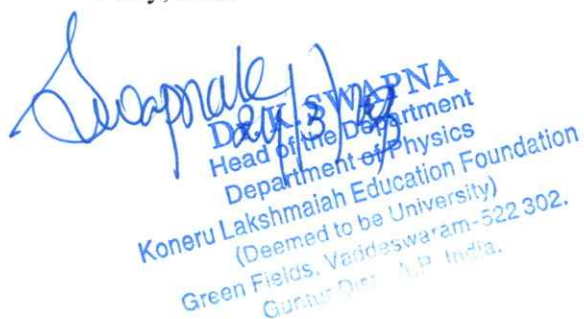 Swapna
Dr. K. SWAPNA
Head of the Department
Department of Physics
Koneru Lakshmaiah Education Foundation
(Deemed to be University)
Green Fields, Vaddeswaram-522 302.
Guntur Dist., A.P. India.